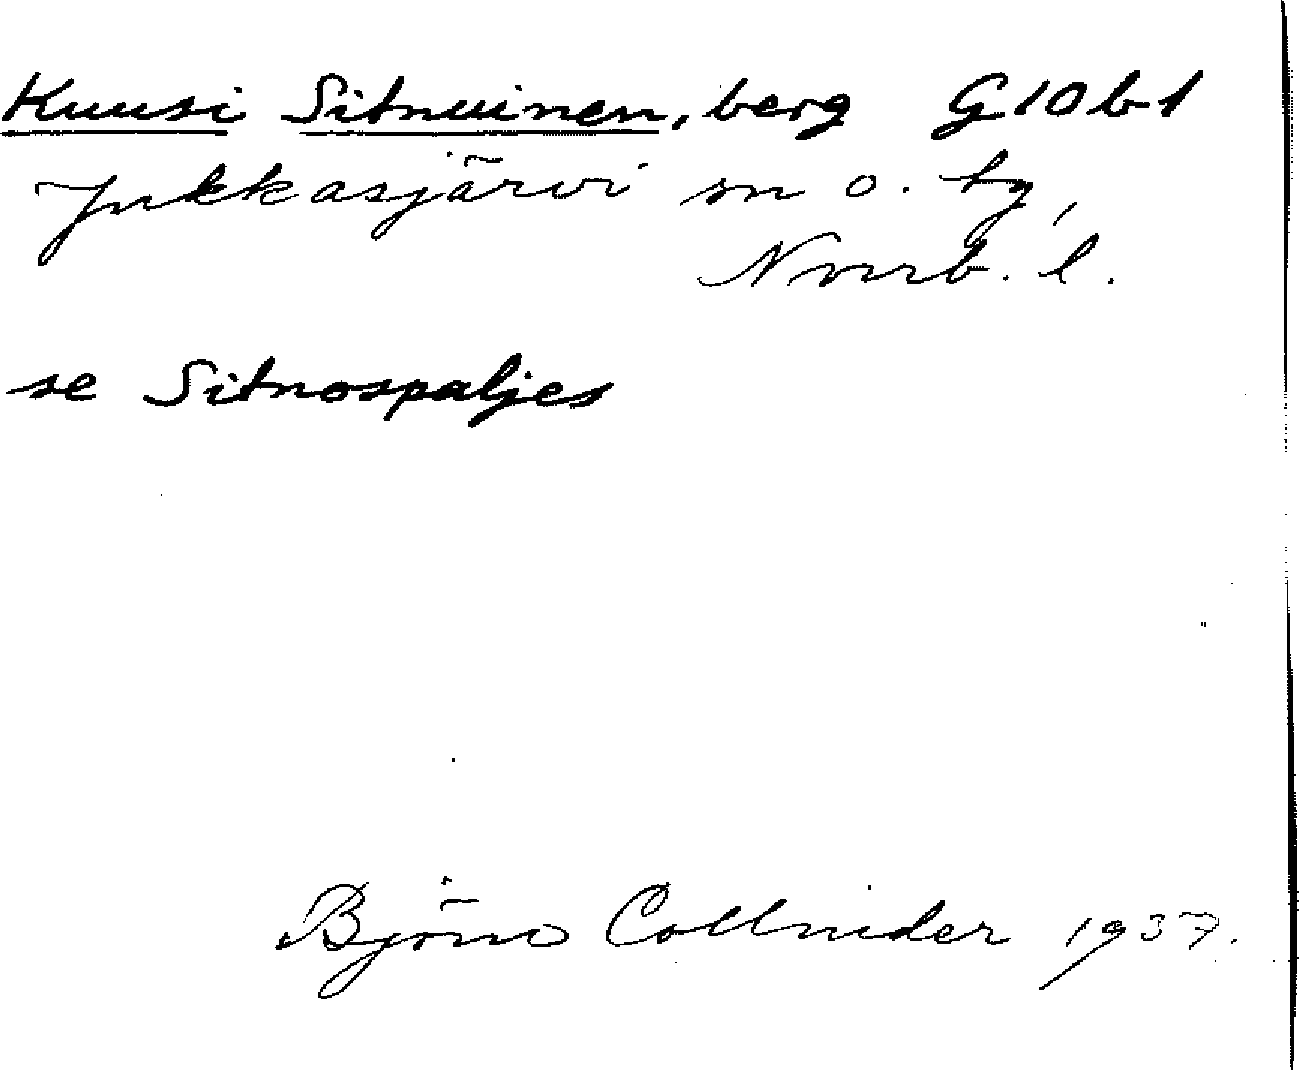 Kuusi Sitnuinen, berg G10b1
Jukkasjärvi sn o. tg,
Norrb. l.
se Sitnospaljes
Björn Collinder 1937.